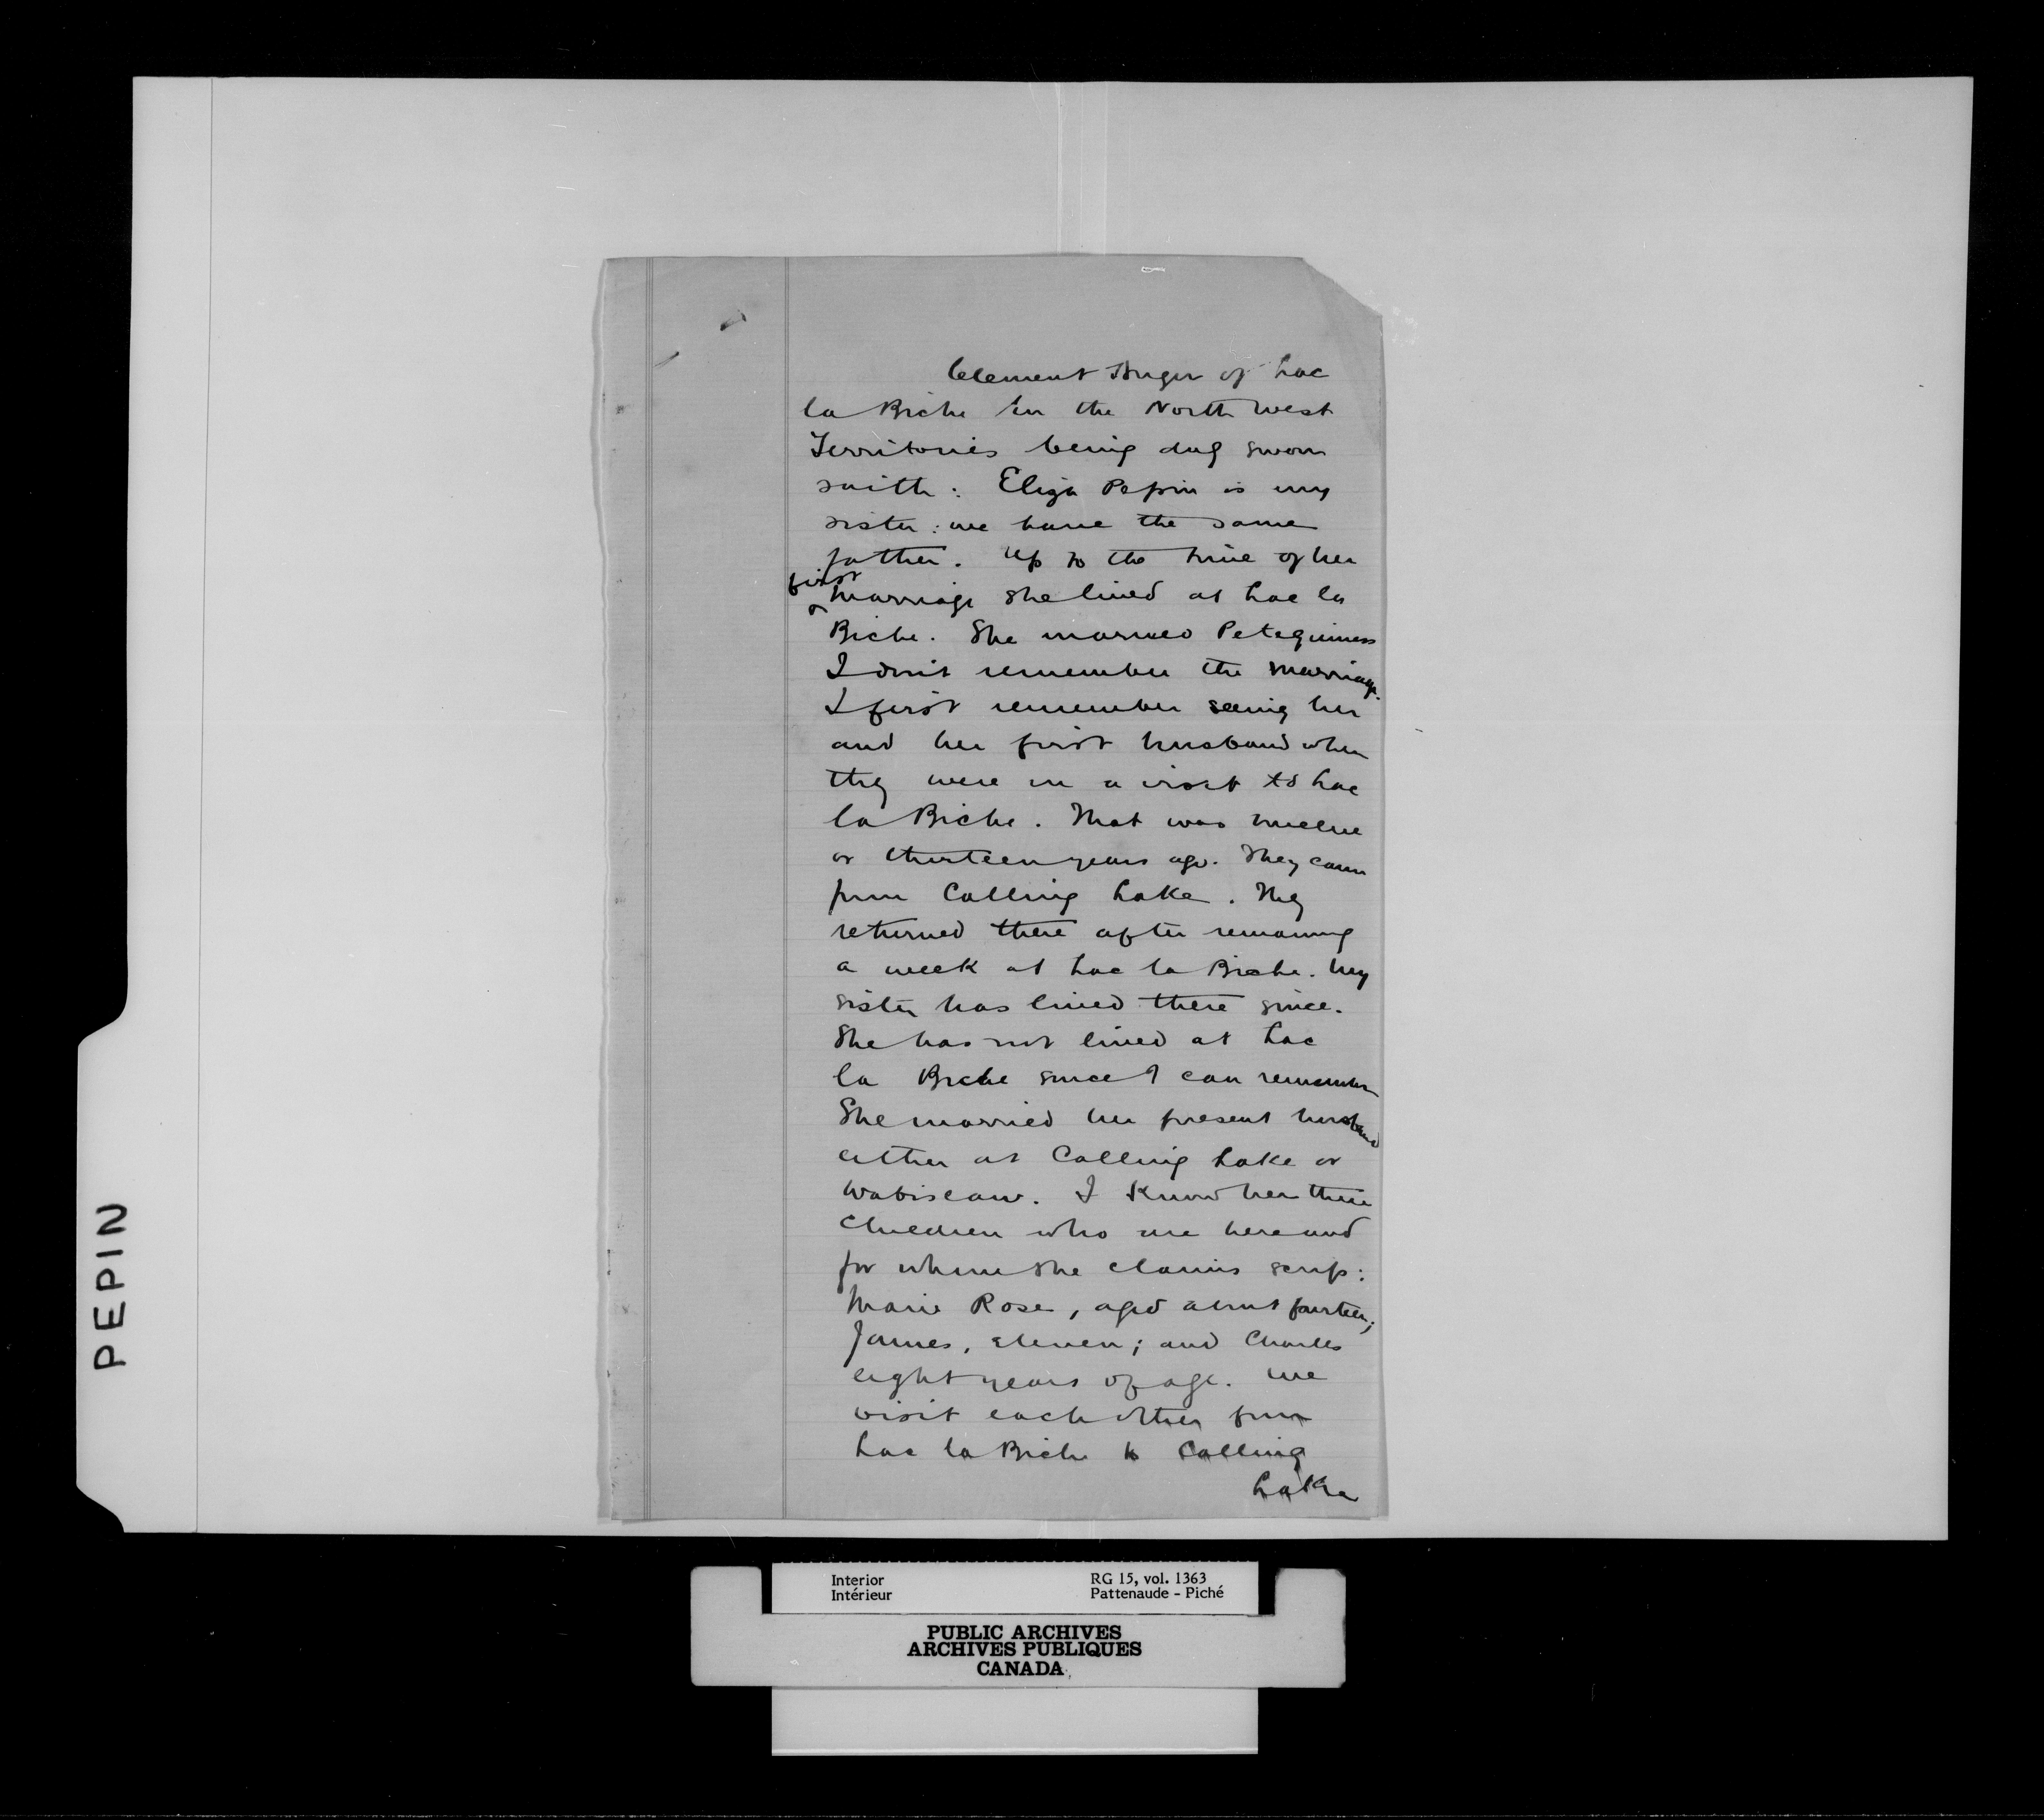 Clement Auger of Lac
la Biche in the North West
Territories being duly sworn
saith: Eliza Pepin is my
sister: we have the same
father. Up to the time of her
first
marriage she lived at Lac la
Biche. She married Peteguiness
I don't remember the marriage.
I first remember seeing her
and her first husband when
they were on a visit to Lac
la Biche. That was twelve
or thirteen years ago. They came
from Calling Lake. They
returned there after remaining
a week at Lac la Biche. My
sister has lived there since.
She has not lived at Lac
la Biche since I can remember
She married her present husband
either at Calling Lake or
Wabiscaw. I know her three
children who are here and
for whom she claims scrip:
Marie Rose, aged about fourteen;
James, eleven; and Charles
eight years of age. We
visit each other from
Lac la Biche to Calling
Lake
PEPIN
Interior
Intérieur
RG 15, vol. 1363
Pattenaude - Piché
PUBLIC ARCHIVES
ARCHIVES PUBLIQUES
CANADA